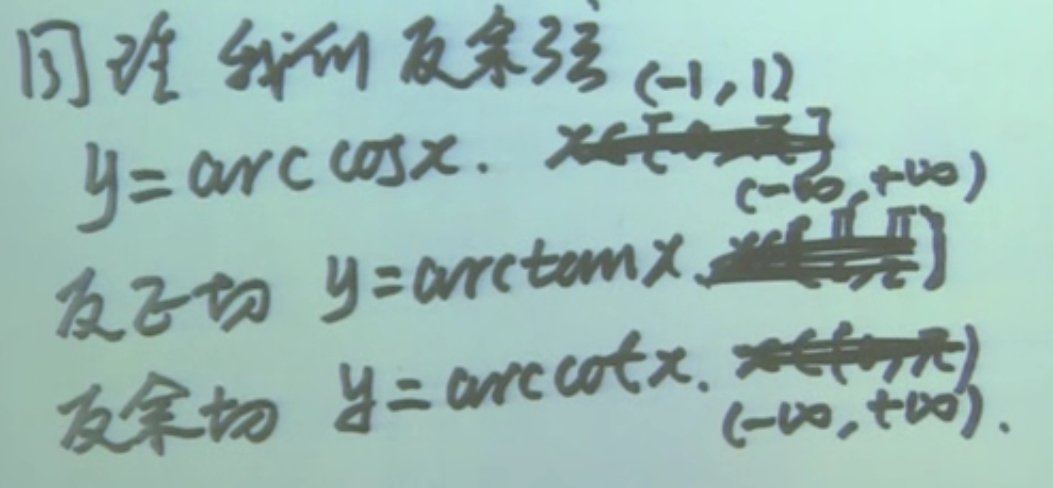 同理 我们 反余弦 (-1, 1)
y = arc cos x.
(-∞, +∞)
反正切 y = arctan x.
反余切 y = arc cot x.
(-∞, +∞).